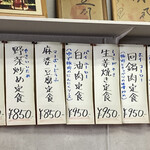 回鍋肉定食
¥950-
生姜焼き定食
¥950-
白油肉定食
¥950-
麻婆豆腐定食
¥850-
野菜炒め定食
¥850-